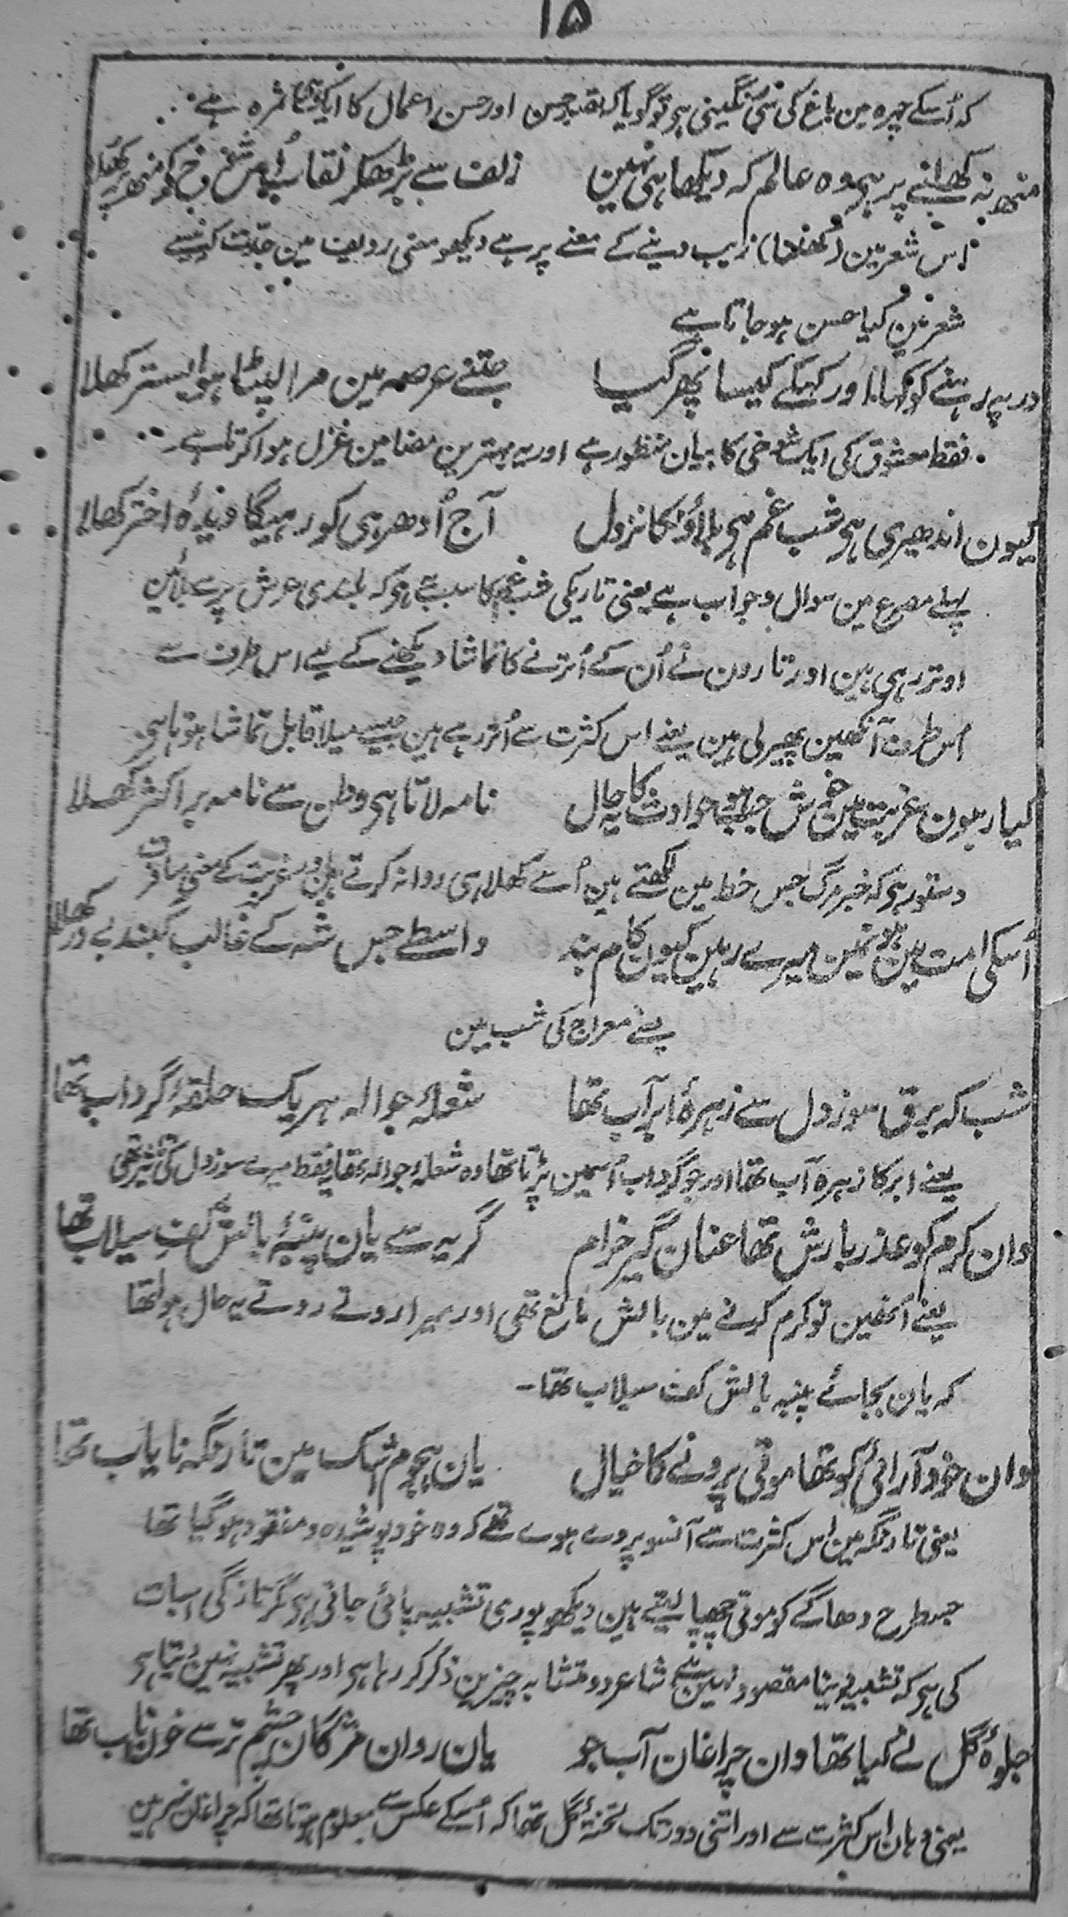 ۱۵
کہ اُسکے چہرہ مین باغ کی سی رنگینی ہو تو گویا کہ قبر حسن اور حسن اعمال کا ایک ثمرہ ہے
منھ نہ کھلنے پر ہی وہ عالم کہ دیکھا ہی نہین زلف سے بڑھکر نقاب اُس شوخ کو منھ پر کھلا
اس شعر مین (کھلنا) زیب دینے کے معنے پر ہے دیکھو معنی ردیف مین جدت کرنیسے
شعر مین کیا حسن ہو جاتا ہے
در پہ رہنے کو کہا اور کہکے کیسا پھر گیا جتنے عرصہ مین مرا لپٹا ہوا بستر کھلا
فقط معشوق کی ایک شوخی کا بیان منظور ہے اور یہ بہترین مضامین غزل ہوا کرتا ہے
کیون اندھیری ہی شب غم ہی بلاؤنکا نزول آج اُدھر ہی کو رہیگا دیدۂ اختر کھلا
پہلے مصرع مین سوال و جواب ہے یعنی تاریکی شب غم کا سبب یہ ہو کہ بلندی عرش پر سے بلائین
اوتر رہی ہین اور تارون نے اُن کے اُترنے کا تماشا دیکھنے کے لیے اس طرف سے
اُس طرف آنکھین پھیر لی ہین یعنے اس کثرت سے اُتر رہے ہین جیسے میلا قابل تماشا ہوتا ہی
کیا رہون غربت مین خوش جب ہو حوادث کا یہ حال نامہ لاتا ہی وطن سے نامہ بر اکثر کھلا
دستور ہو کہ خبر مرگ جس خط مین لکھتے ہین اُسے کھلا ہی روانہ کرتے ہین اور غربت کے معنی مسافرت
اُسکی امت مین ہون مین میرے رہین کیون کام بند واسطے جس شہ کے غالب گنبد بے در کھلا
یعنے معراج کی شب مین
شب کہ برق سوز دل سے زہرۂ ابر آب تھا شعلۂ جوالہ ہر یک حلقۂ گرداب تھا
یعنے ابر کا زہرہ آب تھا اور جو گرداب اُسمین پڑتا تھا وہ شعلۂ جوالہ تھا فقط میرے سوز دل کی تاثیر تھی
وان کرم کو عذر بارش تھا عنان گیر خرام گریہ سے یان پنبۂ بالش کف سیلاب تھا
یعنے اُنھین تو کرم کرنے مین بارش مانع تھی اور میرا روتے روتے یہ حال ہوا تھا
کہ یان بجائے پنبہ بالش کف سیلاب تھا۔
وان خود آرائی کو تھا موتی پرونے کا خیال یان ہجوم اشک مین تار نگہ نایاب تھا
یعنی تار نگہ مین اس کثرت سے آنسو پروے ہوے تھے کہ وہ خود پوشیدہ و مفقود ہو گیا تھا
جسطرح دھاگے کو موتی چھپا لیتے ہین دیکھو پوری تشبیہ پائی جاتی ہو مگر تازگی اسبات
کی ہو کہ تشبیہ دینا مقصود نہین ہے شاعر دو متشابہ چیزین ذکر کر رہا ہی اور پھر تشبیہ نہین دیتا ہو
جلوۂ گل نے کیا تھا وان چراغان آب جو یان روان مژگان چشم تر سے خون ناب تھا
یعنی وہان اس کثرت سے اور اتنی دور تک تختۂ گل تھا کہ اُسکے عکس سے معلوم ہوتا تھا کہ چراغان نہر مین